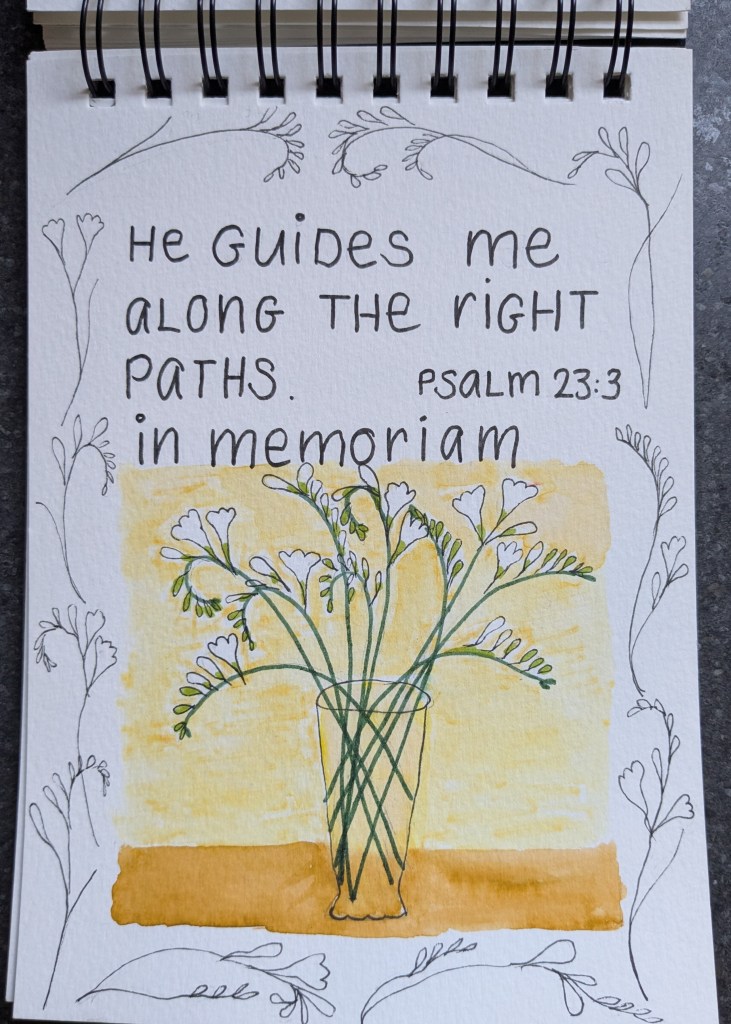 He GUiDes me
aLONG THe riGHT
PaTHS. PSaLm 23:3
in memoriam